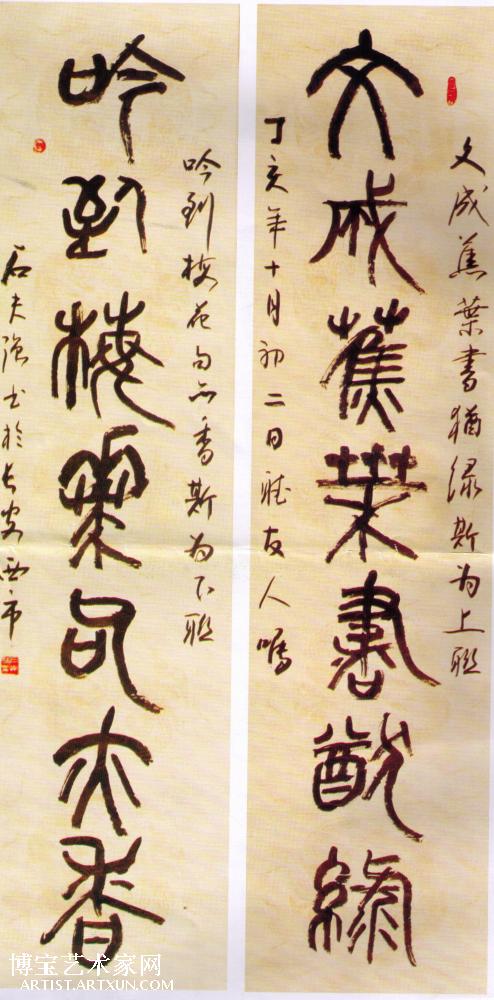 文成蕉葉書猶綠
文成蕉葉書猶绿斯为上联
丁亥年十月初二日雅友人嘱
吟到梅花句亦香
吟到梅花句亦香斯为下联
石夫强书於长安西市
博宝艺术家网
ARTIST.ARTXUN.COM